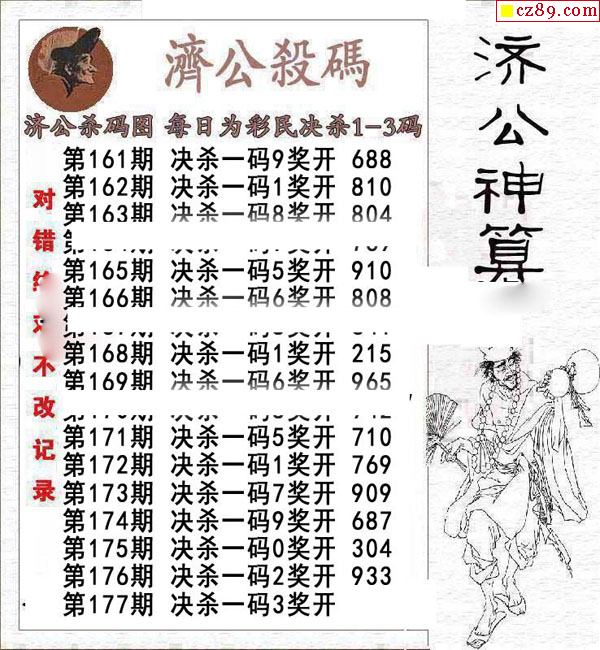 cz89.com
濟公殺碼
济公杀码图 每日为彩民决杀1-3码
第161期 决杀一码9奖开 688
第162期 决杀一码1奖开 810
第163期 决杀一码8奖开 804
第165期 决杀一码5奖开 910
第166期 决杀一码6奖开 808
第168期 决杀一码1奖开 215
第169期 决杀一码6奖开 965
第171期 决杀一码5奖开 710
第172期 决杀一码1奖开 769
第173期 决杀一码7奖开 909
第174期 决杀一码9奖开 687
第175期 决杀一码0奖开 304
第176期 决杀一码2奖开 933
第177期 决杀一码3奖开
对错 不改记录
济公神算